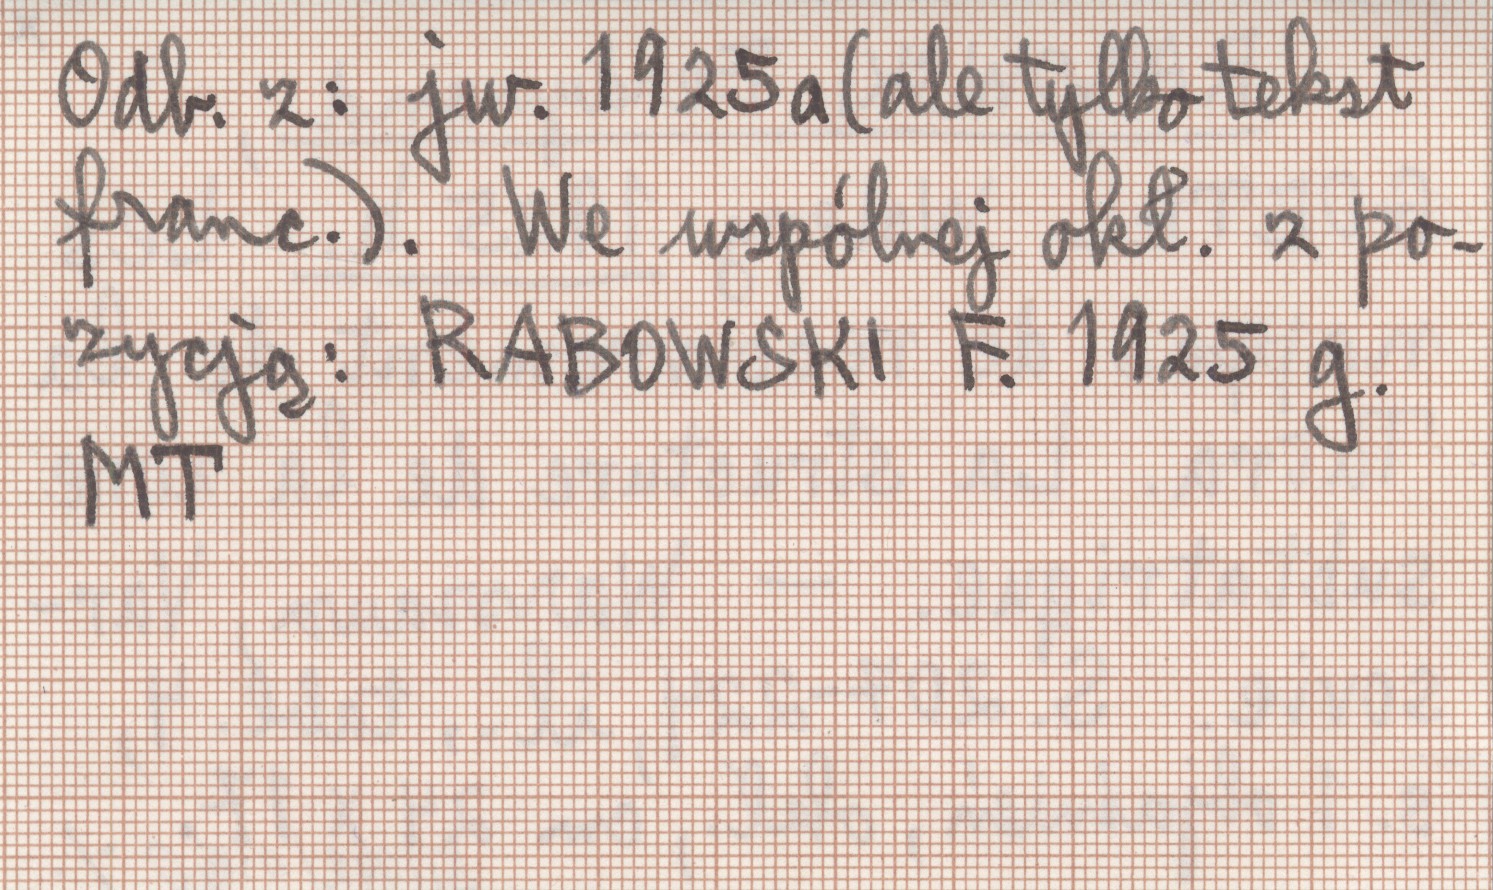 Odb. z: jw. 1925a (ale tylko tekst
franc.). We wspólnej okł. z po-
zycją: RABOWSKI F. 1925 g.
MT